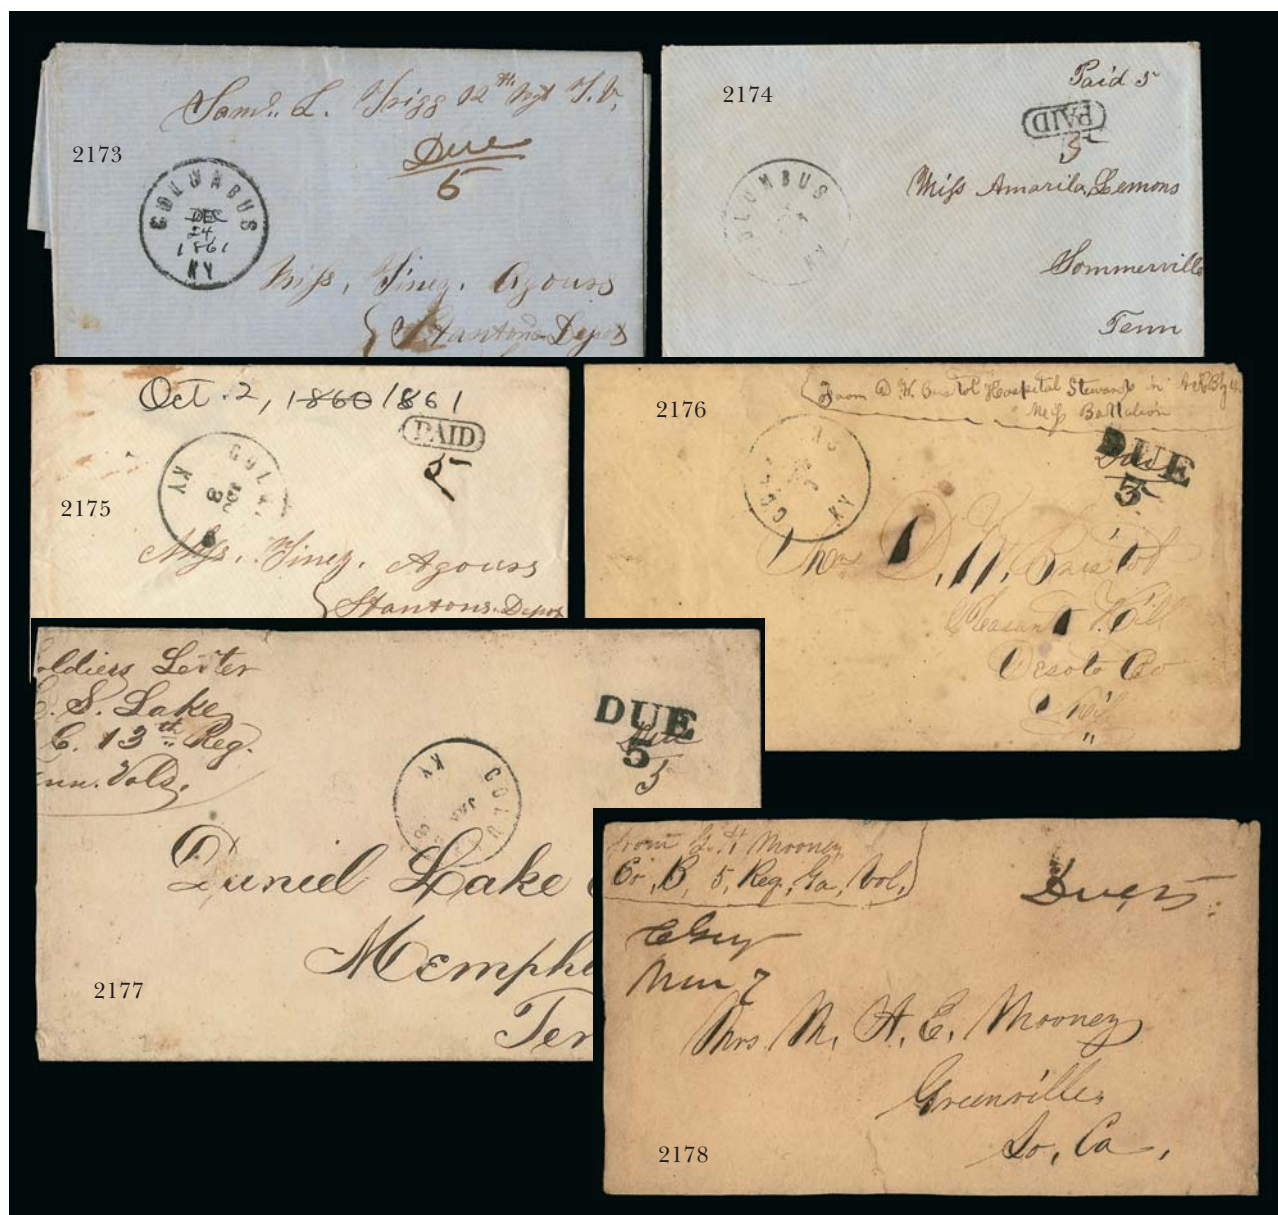 2173
Saml. L. Trigg 12th Regt T.V,
Due
5
COLUMBUS
DEC
24
1861
KY
Miss, Tiney, Agouss
Stantons Depot
2174
Paid 5
PAID
5
OLUMBUS
KY
Miss Amarila, Lemons
Sommerville
Tenn
2175
Oct. 2, 1860 1861
PAID
5
COLU
KY
8
Miss, Tiney, Agouss
Stantons-Depot
2176
From D. W. Bristol Hospital Steward in
Miss Battalion
DUE
Due
5
COL
US
KY
Mrs D. W. Bristol
Pleasant Hill
Desoto Co
Miss
2177
oldiers Letter
S. Lake
C. 13th Reg.
nn. Vols,
DUE
Due
5
5
COLU
JAN
KY
Daniel Lake
Memph
Ten
2178
from G. H Mooney
Co, B, 5, Reg, Ga, Vol,
Due, 5
Mrs. M, A, E, Mooney
Greenville,
So, Ca,